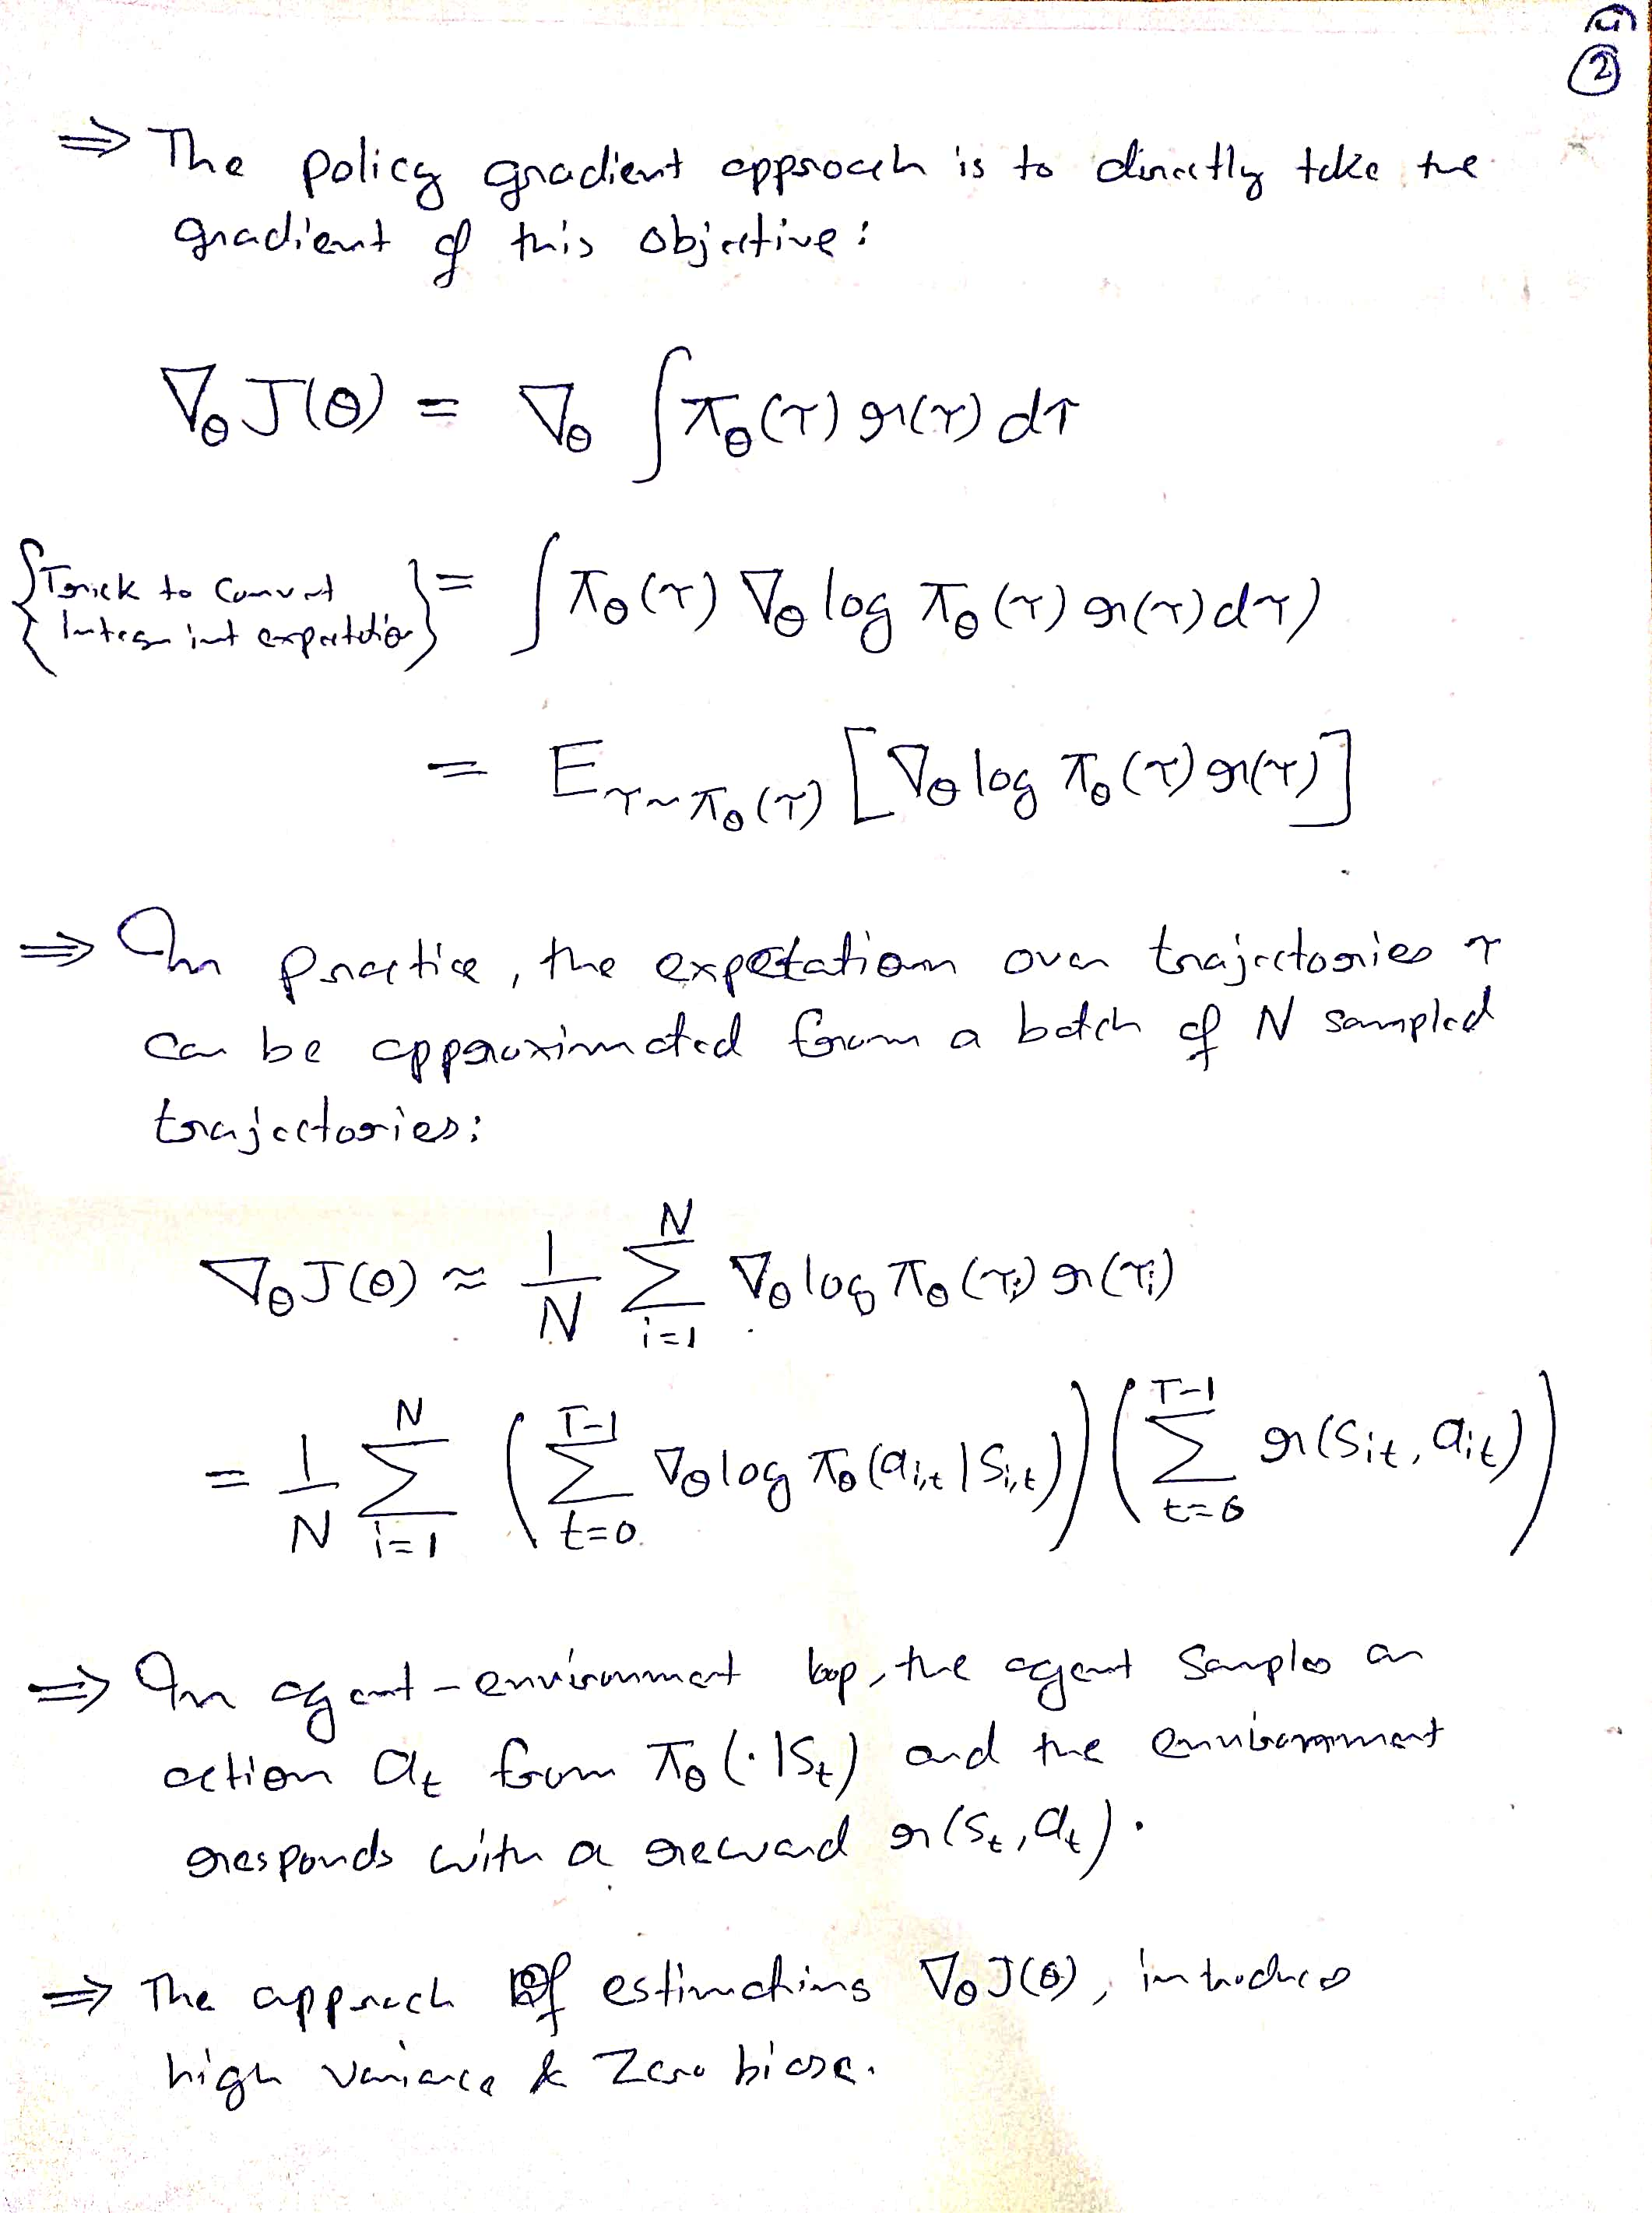 ②
⇒ The policy gradient approach is to directly take the
gradient of this objective:
∇_θ J(θ) = ∇_θ ∫ π_θ(τ) r(τ) dτ
{Trick to Convert
Integr int expectation} = ∫ π_θ(τ) ∇_θ log π_θ(τ) r(τ) dτ)
= E_{τ∼π_θ(τ)} [∇_θ log π_θ(τ) r(τ)]
⇒ In practice, the expectation over trajectories τ
can be approximated from a batch of N sampled
trajectories:
∇_θ J(θ) ≈ 1/N ∑_{i=1}^{N} ∇_θ log π_θ(τ_i) r(τ_i)
= 1/N ∑_{i=1}^{N} (∑_{t=0}^{T-1} ∇_θ log π_θ(a_{i,t} | s_{i,t})) (∑_{t=0}^{T-1} r(s_{it}, a_{it}))
⇒ In agent-environment loop, the agent samples an
action a_t from π_θ(·|s_t) and the environment
responds with a reward r(s_t, a_t).
⇒ The approach of estimating ∇_θ J(θ), introduces
high variance & zero biase.